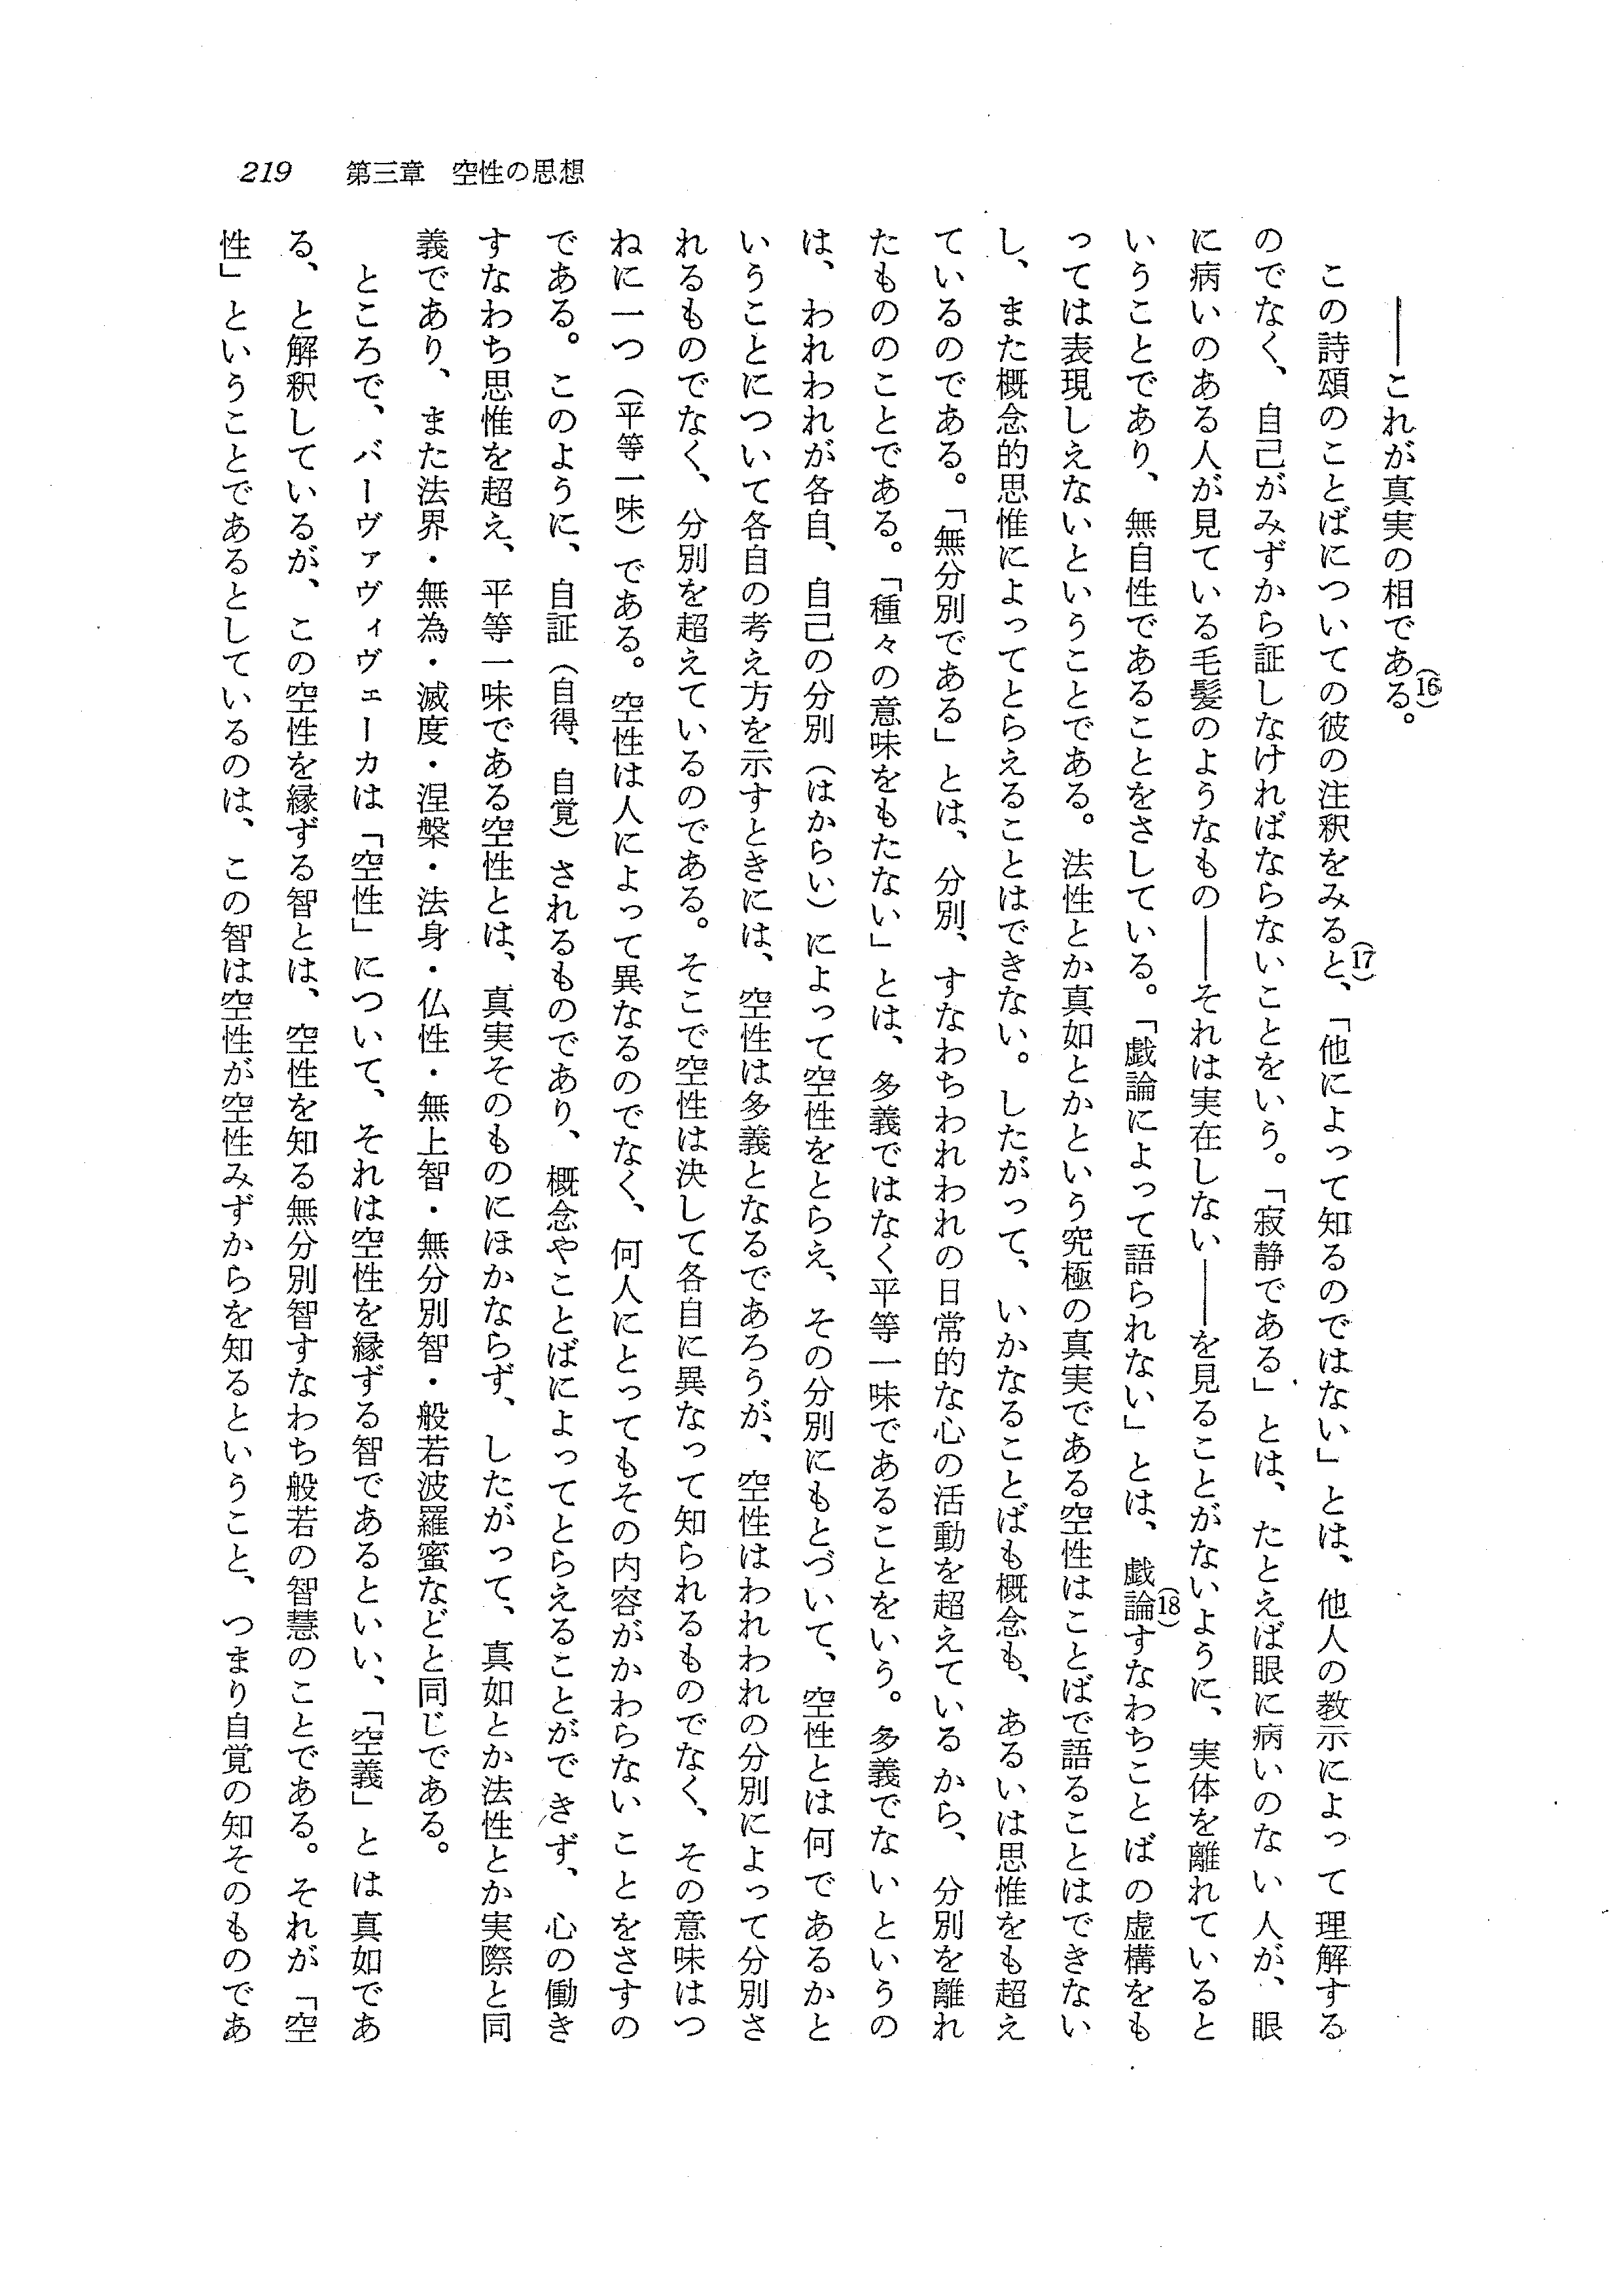 219　第三章　空性の思想
――これが真実の相である。(16)
この詩頌のことばについての彼の注釈をみると、(17)「他によって知るのではない」とは、他人の教示によって理解する
のでなく、自己がみずから証しなければならないことをいう。「寂静である」とは、たとえば眼に病いのない人が、眼
に病いのある人が見ている毛髪のようなもの――それは実在しない――を見ることがないように、実体を離れていると
いうことであり、無自性であることをさしている。「戯論によって語られない」とは、戯論(18)すなわちことばの虚構をも
っては表現しえないということである。法性とか真如とかという究極の真実である空性はことばで語ることはできない
し、また概念的思惟によってとらえることはできない。したがって、いかなることばも概念も、あるいは思惟をも超え
ているのである。「無分別である」とは、分別、すなわちわれわれの日常的な心の活動を超えているから、分別を離れ
たもののことである。「種々の意味をもたない」とは、多義ではなく平等一味であることをいう。多義でないというの
は、われわれが各自、自己の分別（はからい）によって空性をとらえ、その分別にもとづいて、空性とは何であるかと
いうことについて各自の考え方を示すときには、空性は多義となるであろうが、空性はわれわれの分別によって分別さ
れるものでなく、分別を超えているのである。そこで空性は決して各自に異なって知られるものでなく、その意味はつ
ねに一つ（平等一味）である。空性は人によって異なるのでなく、何人にとってもその内容がかわらないことをさすの
である。このように、自証（自得、自覚）されるものであり、概念やことばによってとらえることができず、心の働き
すなわち思惟を超え、平等一味である空性とは、真実そのものにほかならず、したがって、真如とか法性とか実際と同
義であり、また法界・無為・滅度・涅槃・法身・仏性・無上智・無分別智・般若波羅蜜などと同じである。
ところで、バーヴァヴィヴェーカは「空性」について、それは空性を縁ずる智であるといい、「空義」とは真如であ
る、と解釈しているが、この空性を縁ずる智とは、空性を知る無分別智すなわち般若の智慧のことである。それが「空
性」ということであるとしているのは、この智は空性が空性みずからを知るということ、つまり自覚の知そのものであ